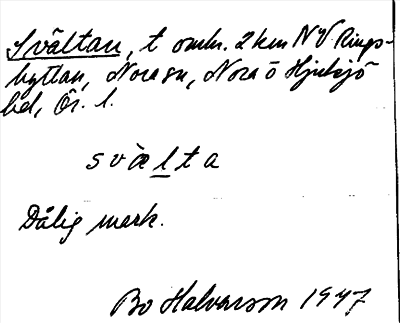 Svältan, t omr. 2 km NV Rings-
hyttan, Nora sn, Nora o Hjulsjö
bd, Ör. l.
svàlta
Dålig mark.
Bo Halvarson 1947